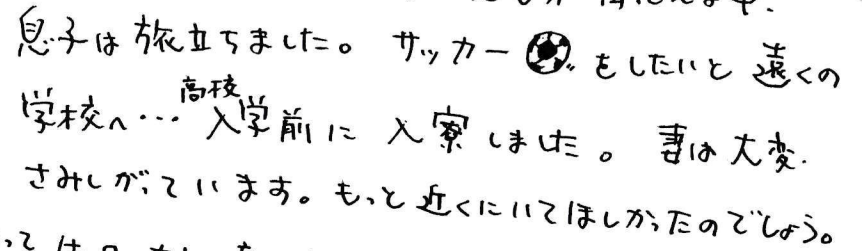 息子は旅立ちました。サッカー⚽をしたいと遠くの
学校へ…高校入学前に入寮しました。妻は大変
さみしがっています。もっと近くにいてほしかったのでしょう。